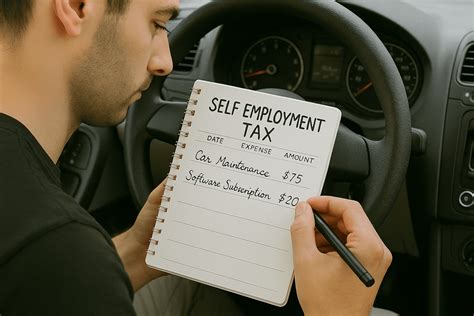 SELF EMPLOYMENT
TAX
DATE EXPENSE AMOUNT
Car Maintenance $75
Software Subscription $20